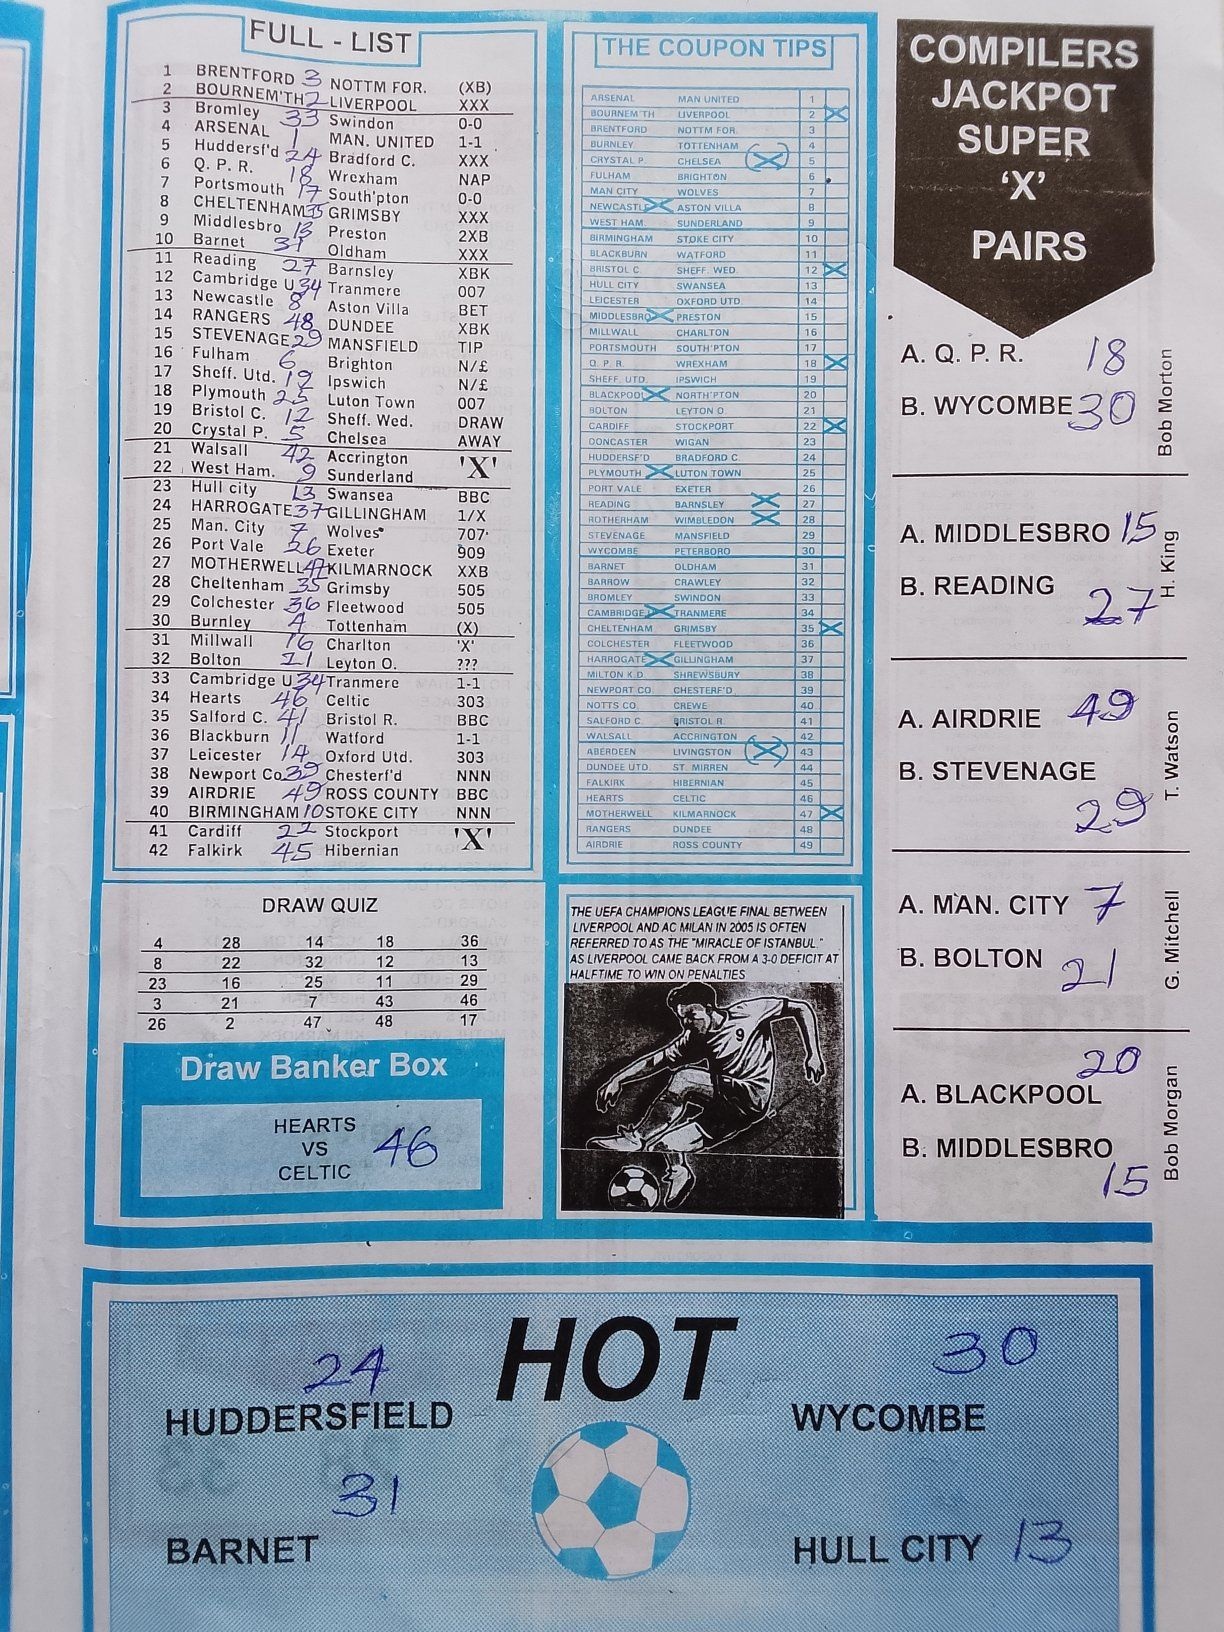 FULL - LIST
1 BRENTFORD 3 NOTTM FOR. (XB)
2 BOURNEM'TH 2 LIVERPOOL XXX
3 Bromley 33 Swindon 0-0
4 ARSENAL 1 MAN. UNITED 1-1
5 Huddersf'd 24 Bradford C. XXX
6 Q. P. R. 18 Wrexham NAP
7 Portsmouth 17 South'pton 0-0
8 CHELTENHAM 35 GRIMSBY XXX
9 Middlesbro 13 Preston 2XB
10 Barnet 31 Oldham XXX
11 Reading 27 Barnsley XBK
12 Cambridge U 34 Tranmere 007
13 Newcastle 8 Aston Villa BET
14 RANGERS 48 DUNDEE XBK
15 STEVENAGE 29 MANSFIELD TIP
16 Fulham 6 Brighton N/£
17 Sheff. Utd. 19 Ipswich N/£
18 Plymouth 25 Luton Town 007
19 Bristol C. 12 Sheff. Wed. DRAW
20 Crystal P. 5 Chelsea AWAY
21 Walsall 42 Accrington 'X'
22 West Ham. 9 Sunderland
23 Hull city 13 Swansea BBC
24 HARROGATE 37 GILLINGHAM 1/X
25 Man. City 7 Wolves 707
26 Port Vale 26 Exeter 909
27 MOTHERWELL 47 KILMARNOCK XXB
28 Cheltenham 35 Grimsby 505
29 Colchester 36 Fleetwood 505
30 Burnley 4 Tottenham (X)
31 Millwall 16 Charlton 'X'
32 Bolton 21 Leyton O. ???
33 Cambridge U 34 Tranmere 1-1
34 Hearts 46 Celtic 303
35 Salford C. 41 Bristol R. BBC
36 Blackburn 11 Watford 1-1
37 Leicester 14 Oxford Utd. 303
38 Newport Co 39 Chesterf'd NNN
39 AIRDRIE 49 ROSS COUNTY BBC
40 BIRMINGHAM 10 STOKE CITY NNN
41 Cardiff 22 Stockport 'X'
42 Falkirk 45 Hibernian
THE COUPON TIPS
ARSENAL MAN UNITED 1
BOURNEM'TH LIVERPOOL 2 X
BRENTFORD NOTTM FOR. 3
BURNLEY TOTTENHAM 4
CRYSTAL P. CHELSEA (X) 5
FULHAM BRIGHTON 6
MAN CITY WOLVES 7
NEWCASTLE X ASTON VILLA 8
WEST HAM. SUNDERLAND 9
BIRMINGHAM STOKE CITY 10
BLACKBURN WATFORD 11
BRISTOL C. SHEFF. WED. 12 X
HULL CITY SWANSEA 13
LEICESTER OXFORD UTD. 14
MIDDLESBRO X PRESTON 15
MILLWALL CHARLTON 16
PORTSMOUTH SOUTH'PTON 17
Q. P. R. WREXHAM 18 X
SHEFF. UTD. IPSWICH 19
BLACKPOOL X NORTH'PTON 20
BOLTON LEYTON O. 21
CARDIFF STOCKPORT 22 X
DONCASTER WIGAN 23
HUDDERSF'D BRADFORD C. 24
PLYMOUTH X LUTON TOWN 25
PORT VALE EXETER 26
READING BARNSLEY X 27
ROTHERHAM WIMBLEDON X 28
STEVENAGE MANSFIELD 29
WYCOMBE PETERBORO 30
BARNET OLDHAM 31
BARROW CRAWLEY 32
BROMLEY SWINDON 33
CAMBRIDGE U X TRANMERE 34
CHELTENHAM GRIMSBY 35 X
COLCHESTER FLEETWOOD 36
HARROGATE X GILLINGHAM 37
MILTON K.D. SHREWSBURY 38
NEWPORT CO. CHESTERF'D 39
NOTTS CO. CREWE 40
SALFORD C. BRISTOL R. 41
WALSALL ACCRINGTON 42
ABERDEEN LIVINGSTON (X) 43
DUNDEE UTD. ST. MIRREN 44
FALKIRK HIBERNIAN 45
HEARTS CELTIC 46
MOTHERWELL KILMARNOCK 47 X
RANGERS DUNDEE 48
AIRDRIE ROSS COUNTY 49
COMPILERS
JACKPOT
SUPER
'X'
PAIRS
A. Q. P. R. 18
B. WYCOMBE 30
Bob Morton
A. MIDDLESBRO 15
B. READING 27
H. King
A. AIRDRIE 49
B. STEVENAGE
29
T. Watson
A. MAN. CITY 7
B. BOLTON 21
G. Mitchell
20
A. BLACKPOOL
B. MIDDLESBRO
15
Bob Morgan
DRAW QUIZ
4 28 14 18 36
8 22 32 12 13
23 16 25 11 29
3 21 7 43 46
26 2 47 48 17
Draw Banker Box
HEARTS
VS 46
CELTIC
THE UEFA CHAMPIONS LEAGUE FINAL BETWEEN
LIVERPOOL AND AC MILAN IN 2005 IS OFTEN
REFERRED TO AS THE "MIRACLE OF ISTANBUL."
AS LIVERPOOL CAME BACK FROM A 3-0 DEFICIT AT
HALFTIME TO WIN ON PENALTIES
9
HOT
24 30
HUDDERSFIELD WYCOMBE
31
BARNET HULL CITY 13